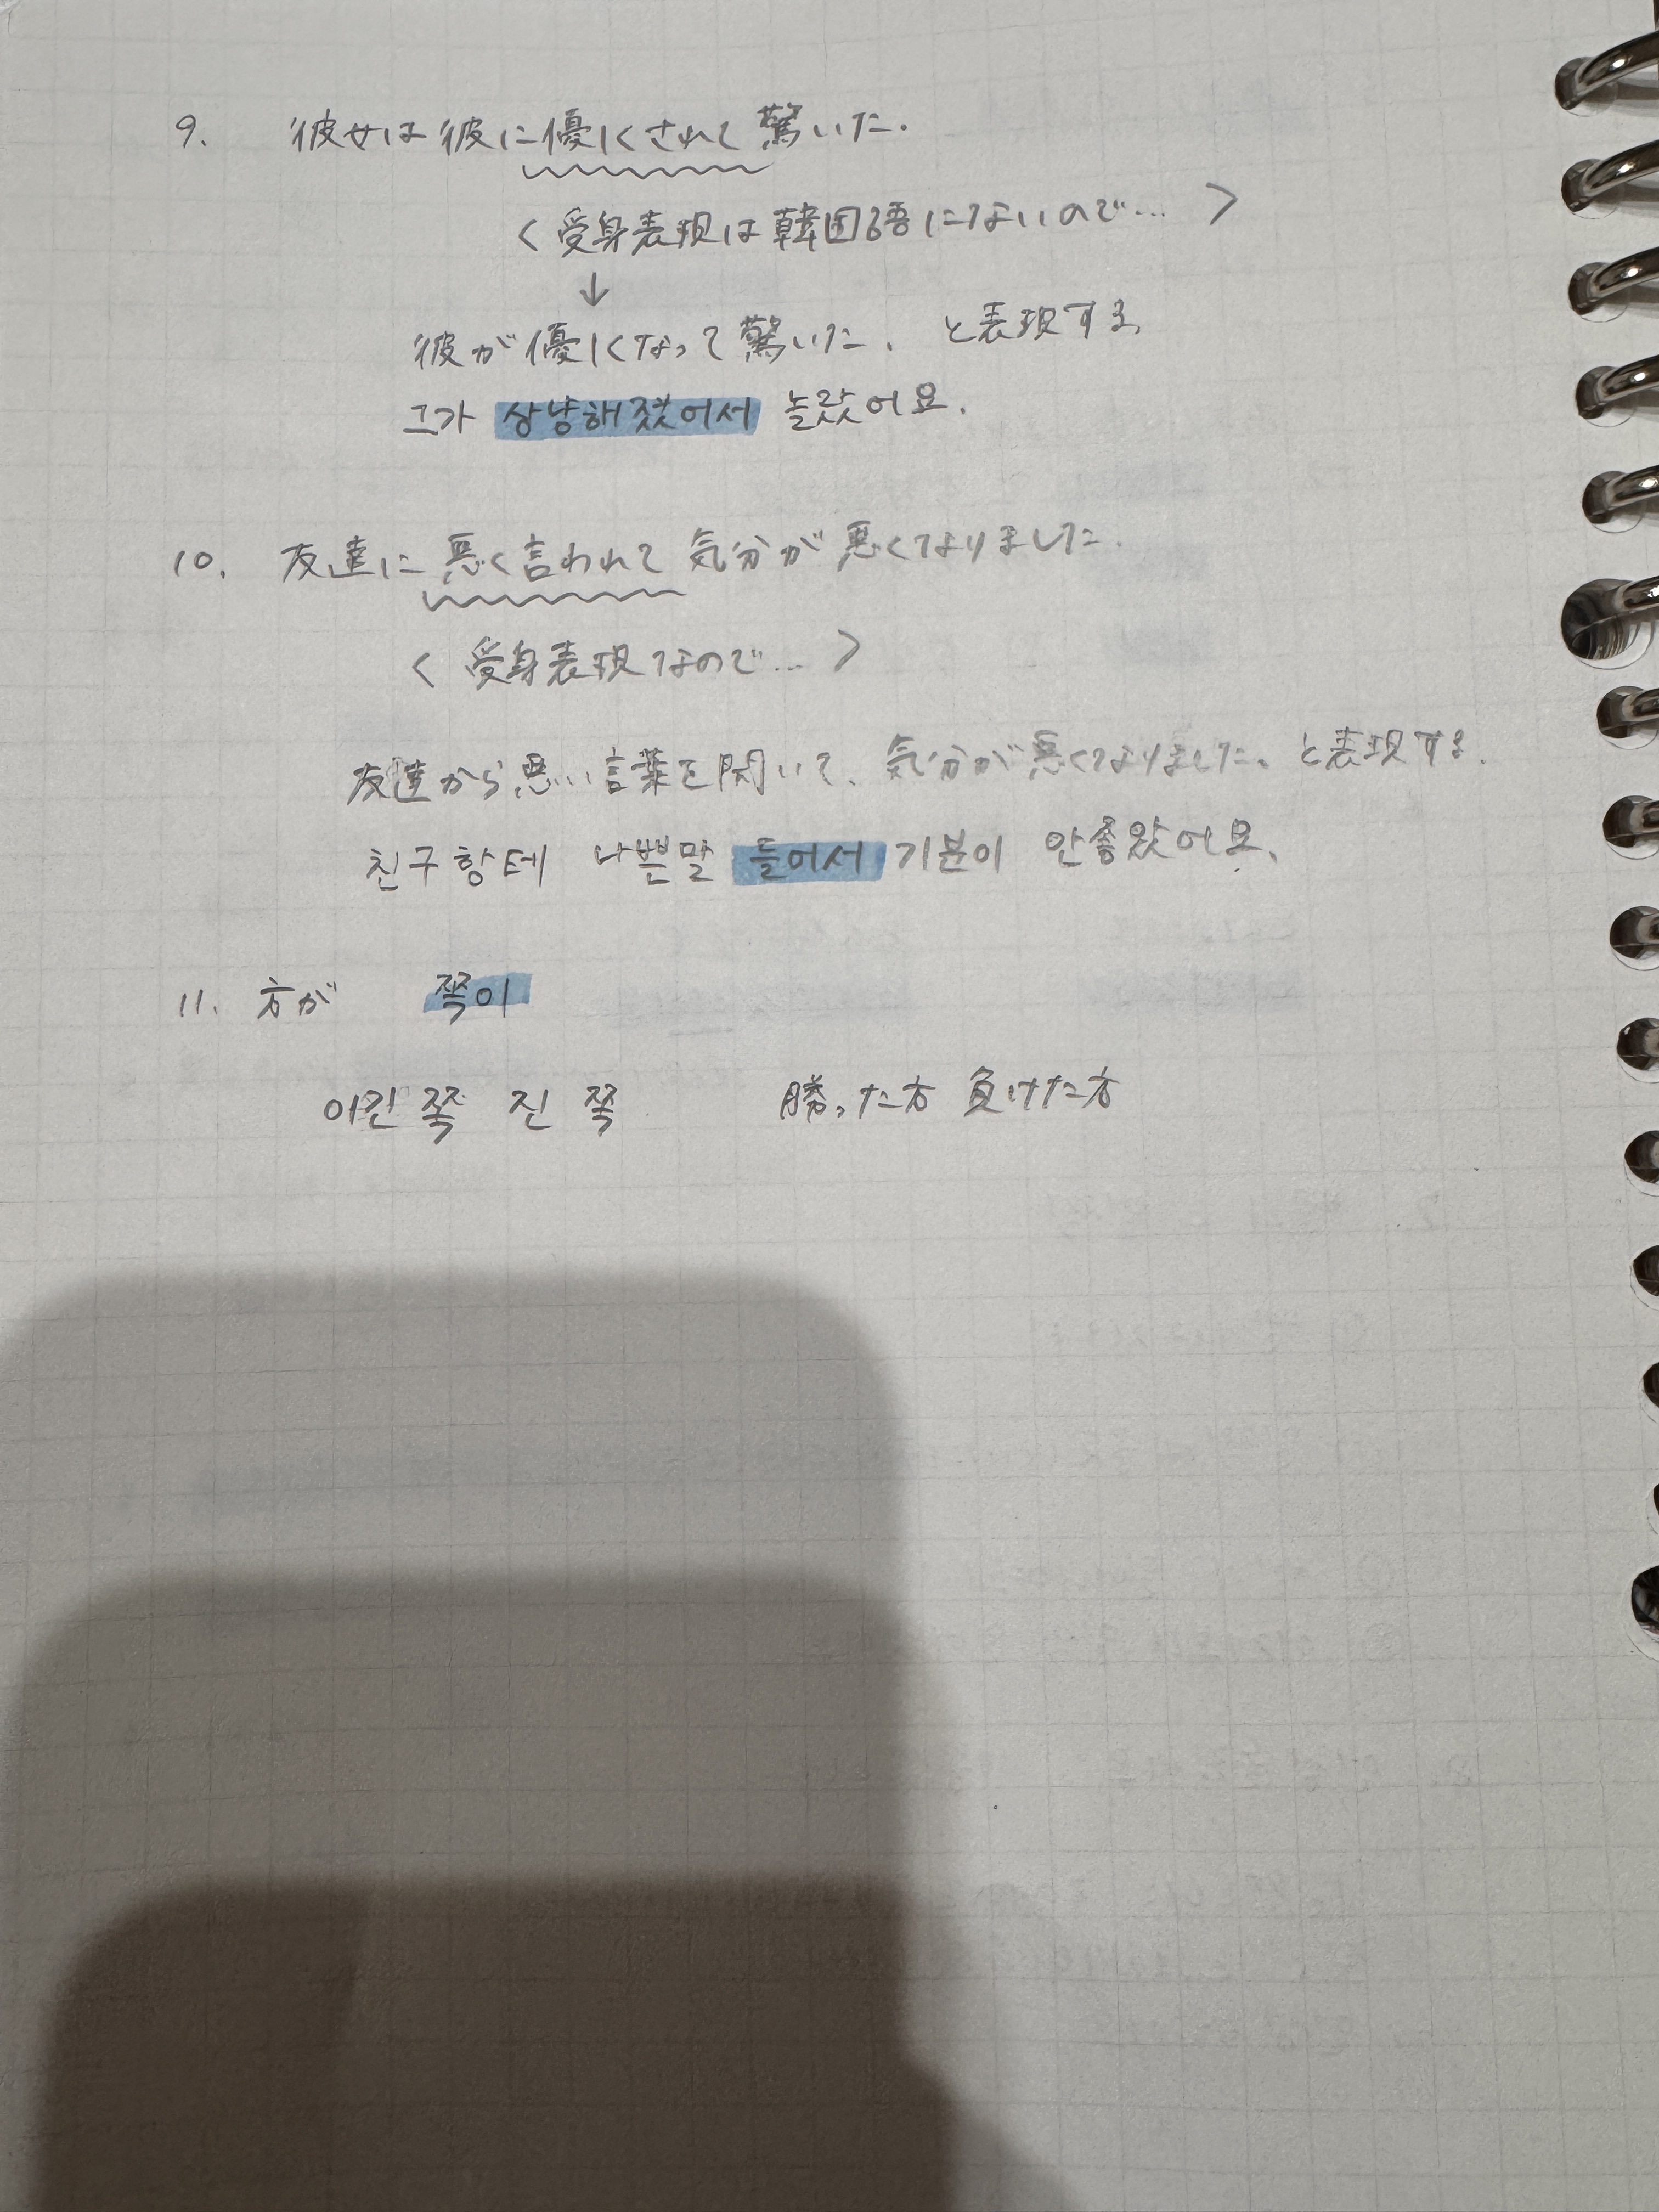 9. 彼女は彼に優しくされて驚いた.
< 受身表現は韓国語にないので… >
↓
彼が優しくなって驚いた. と表現する
그가 상냥해졌어서 놀랐어요.
10. 友達に悪く言われて 気分が悪くなりました.
< 受身表現なので… >
友達から悪い言葉を聞いて、気分が悪くなりました。と表現する.
친구항테 나쁜말 들어서 기분이 안좋았어요.
11. 方が 쪽이
이긴쪽 진쪽 勝った方 負けた方